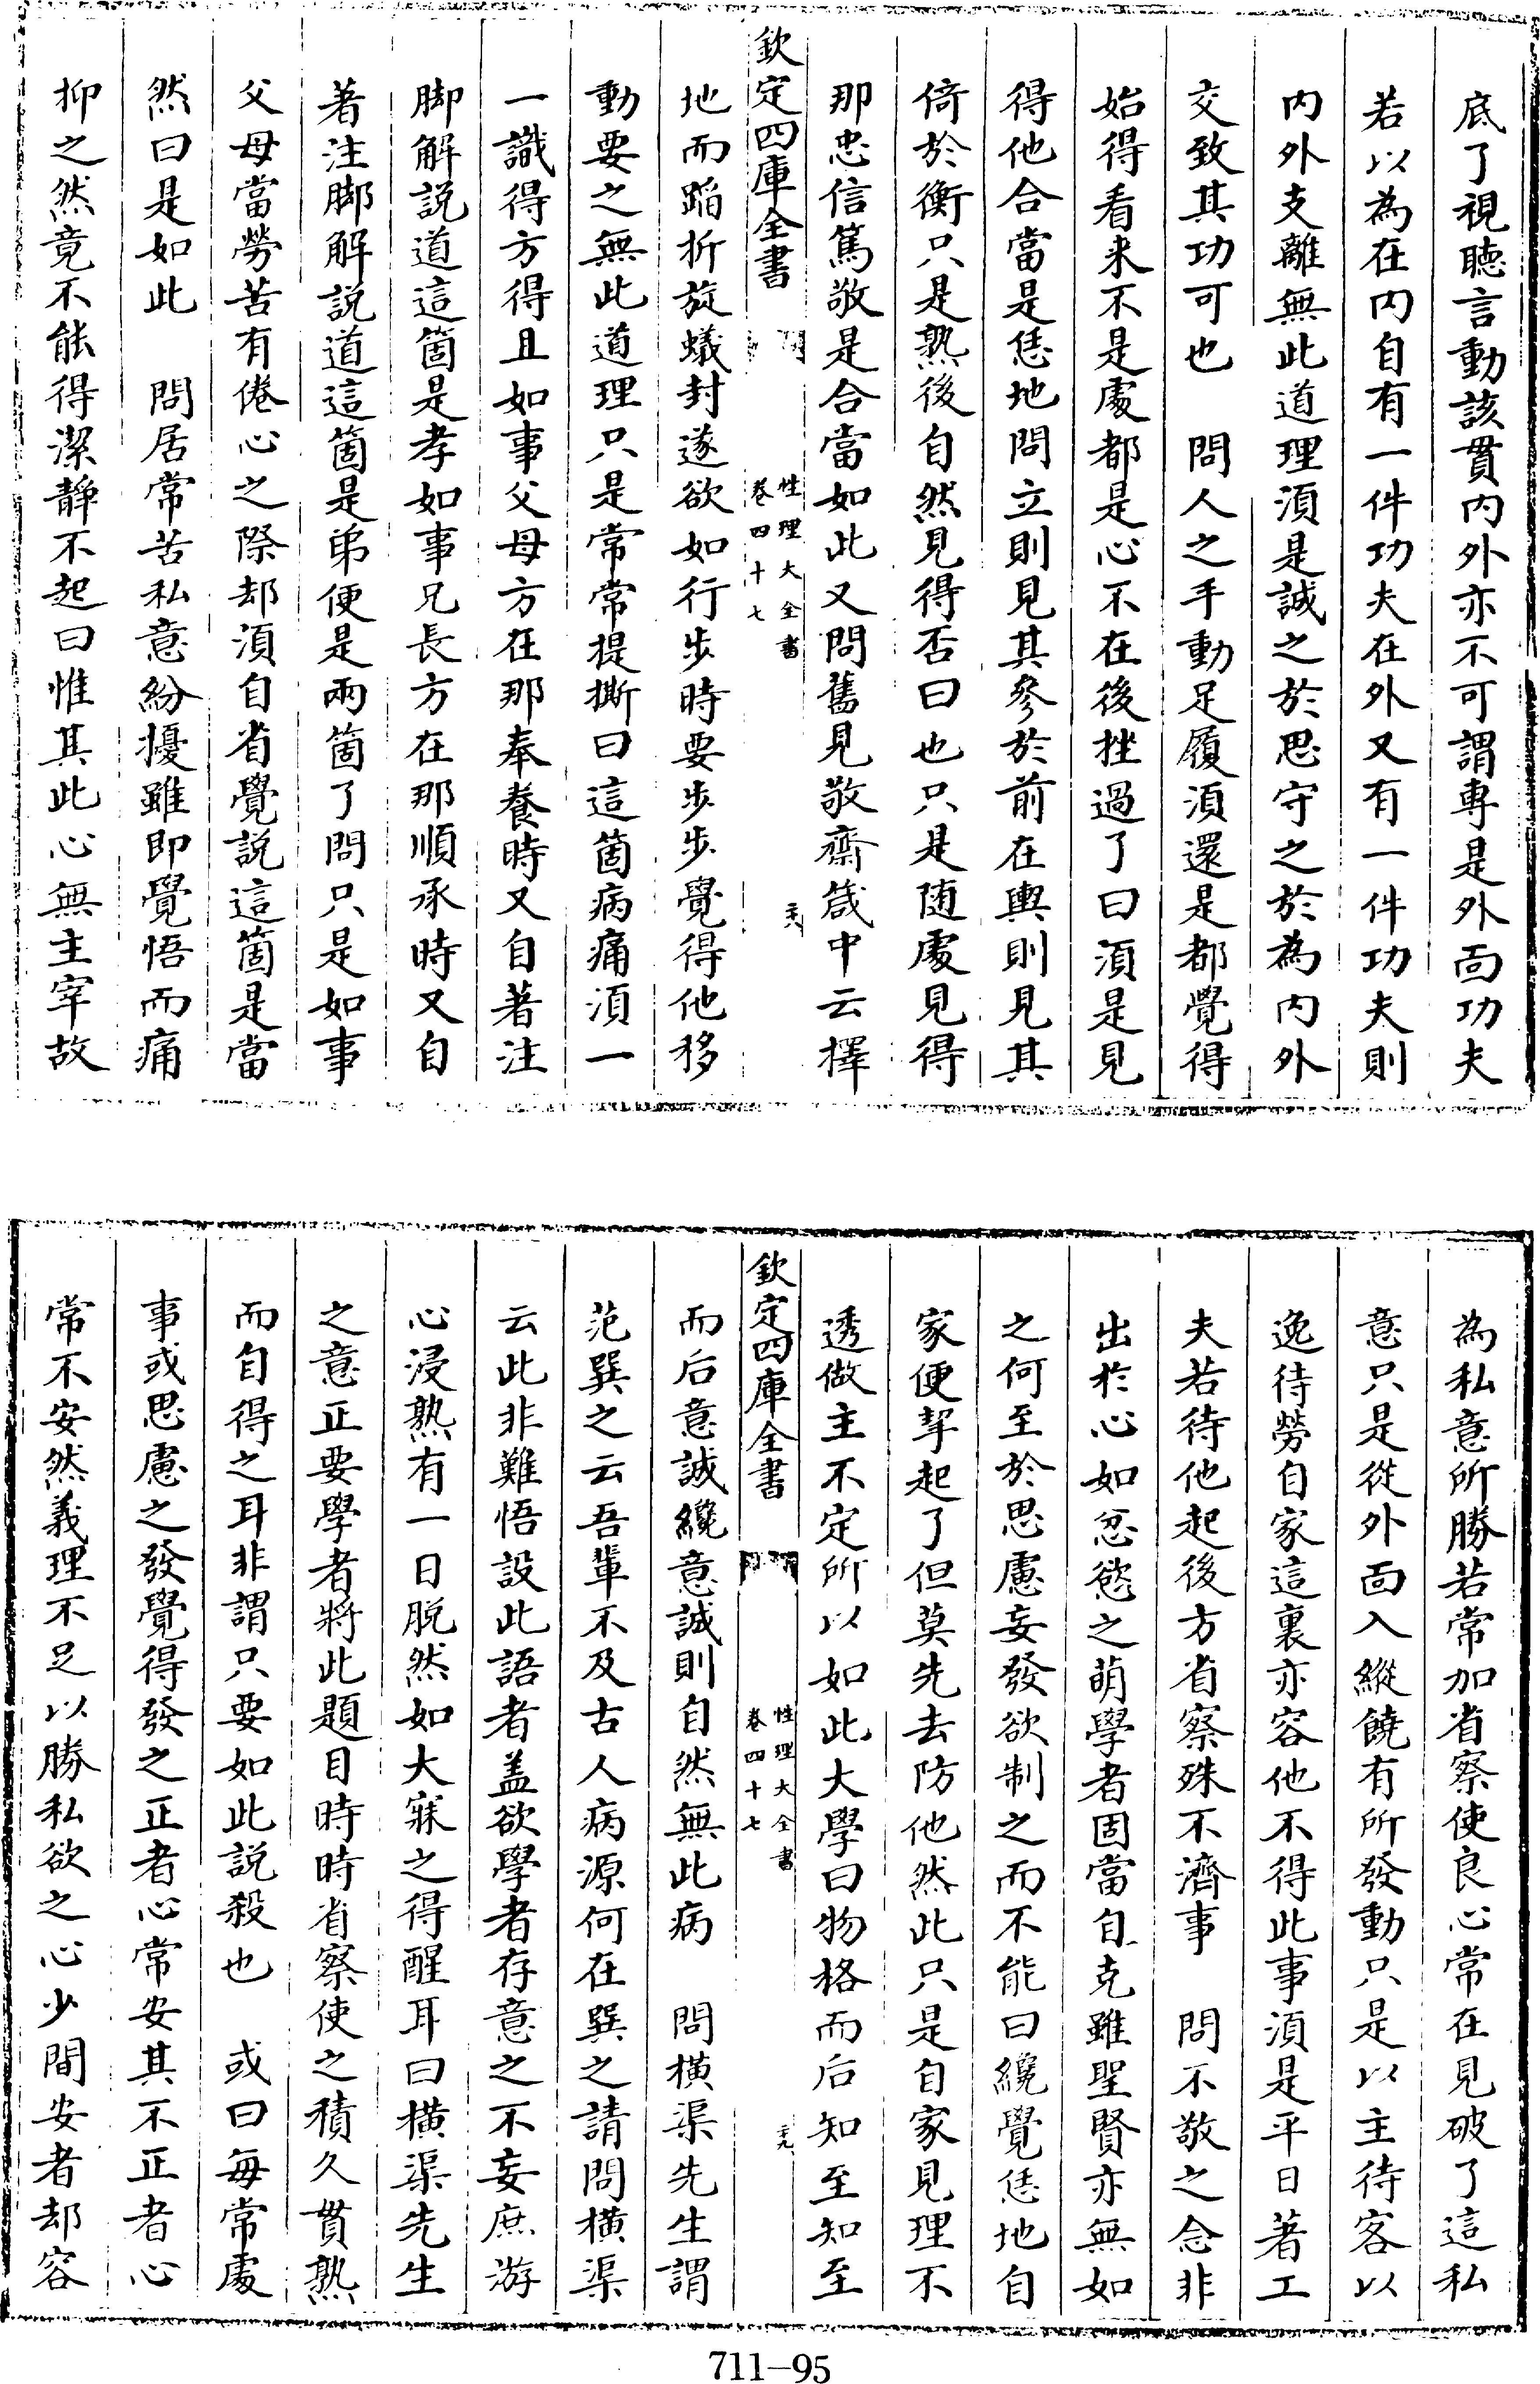 底了視聽言動該貫内外亦不可謂專是外面功夫
若以為在内自有一件功夫在外又有一件功夫則
内外支離無此道理須是誠之於思守之於為内外
交致其功可也　問人之手動足履須還是都覺得
始得看来不是處都是心不在後挫過了曰須是見
得他合當是恁地問立則見其參於前在輿則見其
倚於衡只是熟後自然見得否曰也只是随處見得
那忠信篤敬是合當如此又問舊見敬齋箴中云擇
欽定四庫全書
性理大全書
卷四十七
地而蹈折旋蟻封遂欲如行步時要步步覺得他移
動要之無此道理只是常常提撕曰這箇病痛須一
一識得方得且如事父母方在那奉養時又自著注
脚解説道這箇是孝如事兄長方在那順承時又自
著注脚解説道這箇是弟便是兩箇了問只是如事
父母當勞苦有倦心之際却須自省覺説這箇是當
然曰是如此　問居常苦私意紛擾雖即覺悟而痛
抑之然竟不能得潔静不起曰惟其此心無主宰故
為私意所勝若常加省察使良心常在見破了這私
意只是從外面入縱饒有所發動只是以主待客以
逸待勞自家這裏亦容他不得此事須是平日著工
夫若待他起後方省察殊不濟事　問不敬之念非
出於心如忿慾之萌學者固當自克雖聖賢亦無如
之何至於思慮妄發欲制之而不能曰纔覺恁地自
家便挈起了但莫先去防他然此只是自家見理不
透做主不定所以如此大學曰物格而后知至知至
欽定四庫全書
性理大全書
卷四十七
而后意誠纔意誠則自然無此病　問横渠先生謂
范巽之云吾輩不及古人病源何在巽之請問横渠
云此非難悟設此語者盖欲學者存意之不妄庶游
心浸熟有一日脱然如大寐之得醒耳曰横渠先生
之意正要學者將此題目時時省察使之積久貫熟
而自得之耳非謂只要如此説殺也　或曰每常處
事或思慮之發覺得發之正者心常安其不正者心
常不安然義理不足以勝私欲之心少間安者却容
711-95